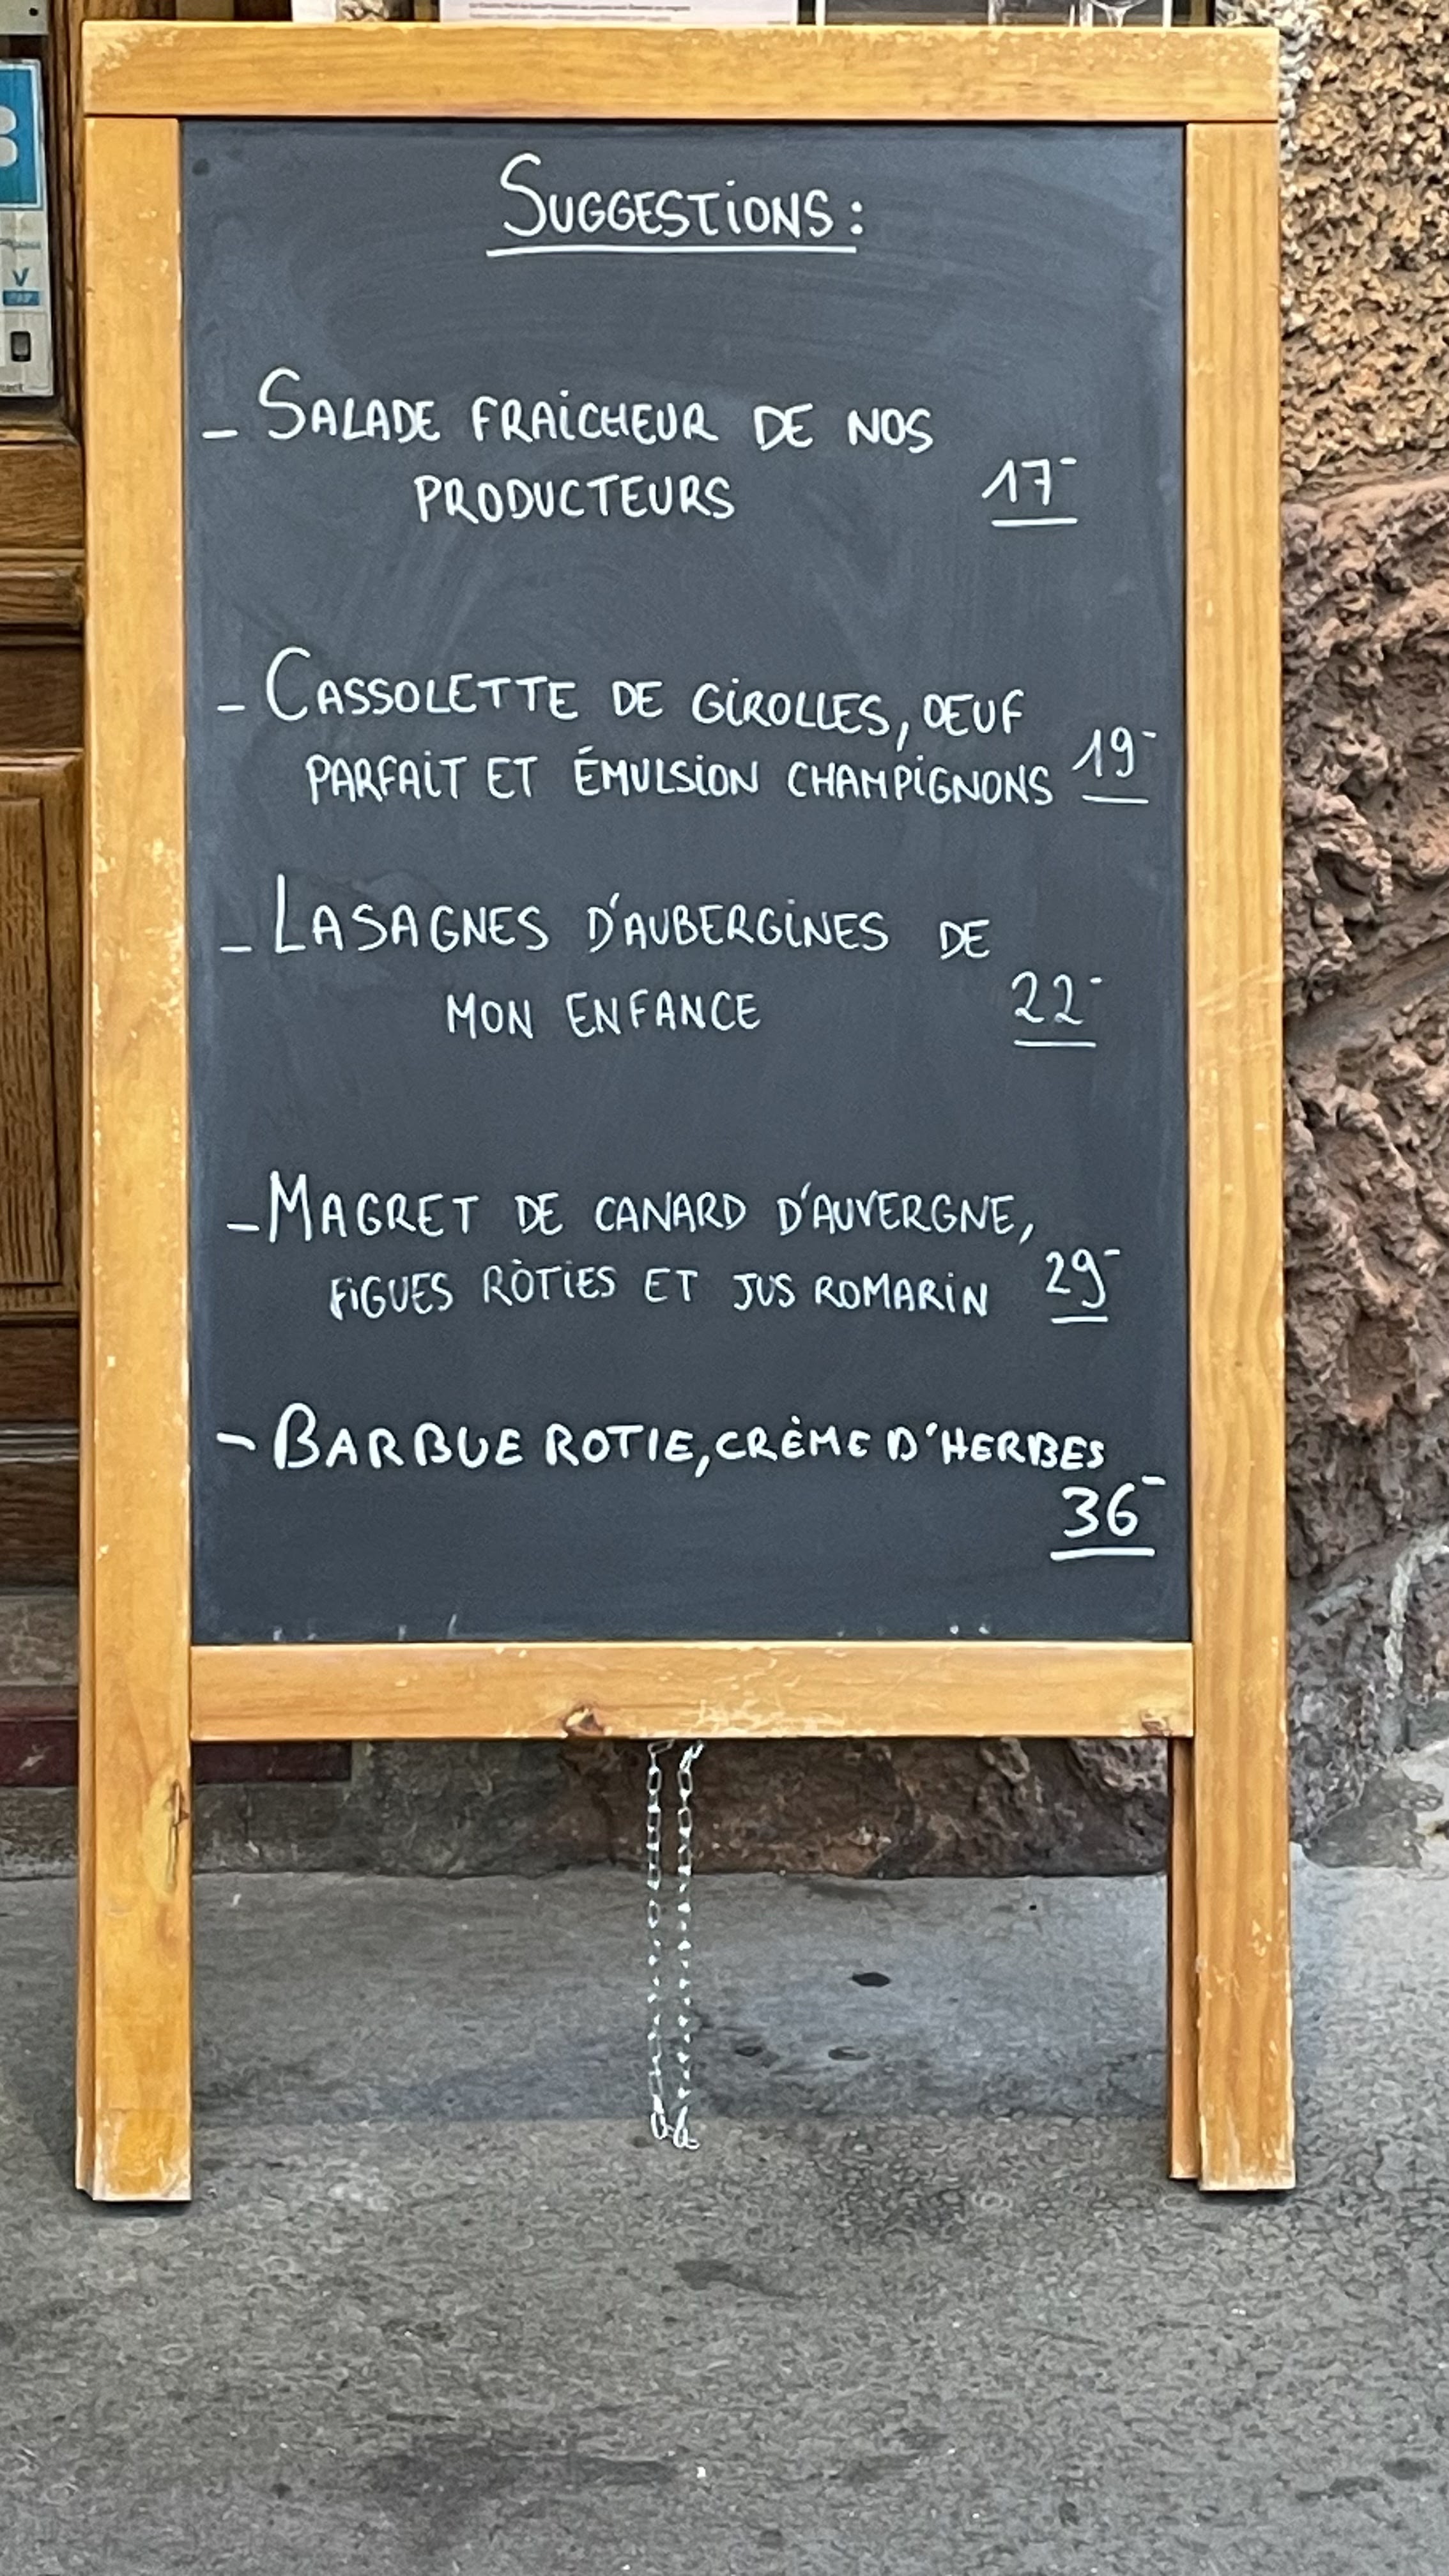 SUGGESTIONS:
- SALADE FRAICHEUR DE NOS
PRODUCTEURS 17-
- CASSOLETTE DE GIROLLES, OEUF
PARFAIT ET ÉMULSION CHAMPIGNONS 19-
- LASAGNES D'AUBERGINES DE
MON ENFANCE 22-
- MAGRET DE CANARD D'AUVERGNE,
FIGUES RÔTIES ET JUS ROMARIN 29-
- BARBUE ROTIE, CRÈME D'HERBES
36-